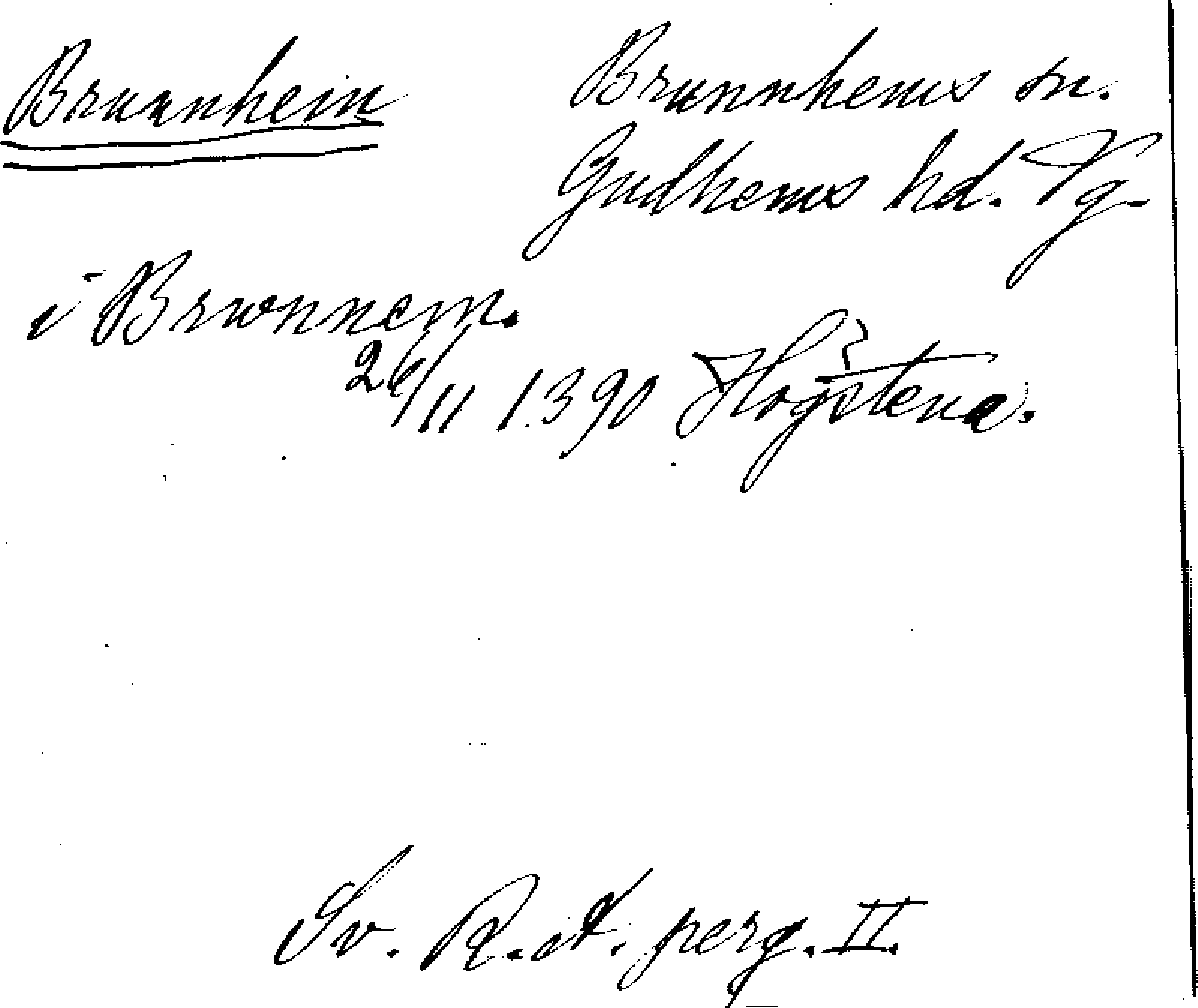 Brunnhem
Brunnhems sn.
Gudhems hd. Vg.
i Brwnnem.
26/11 1390 Hogstena.
Sv. R.A. perg. II.